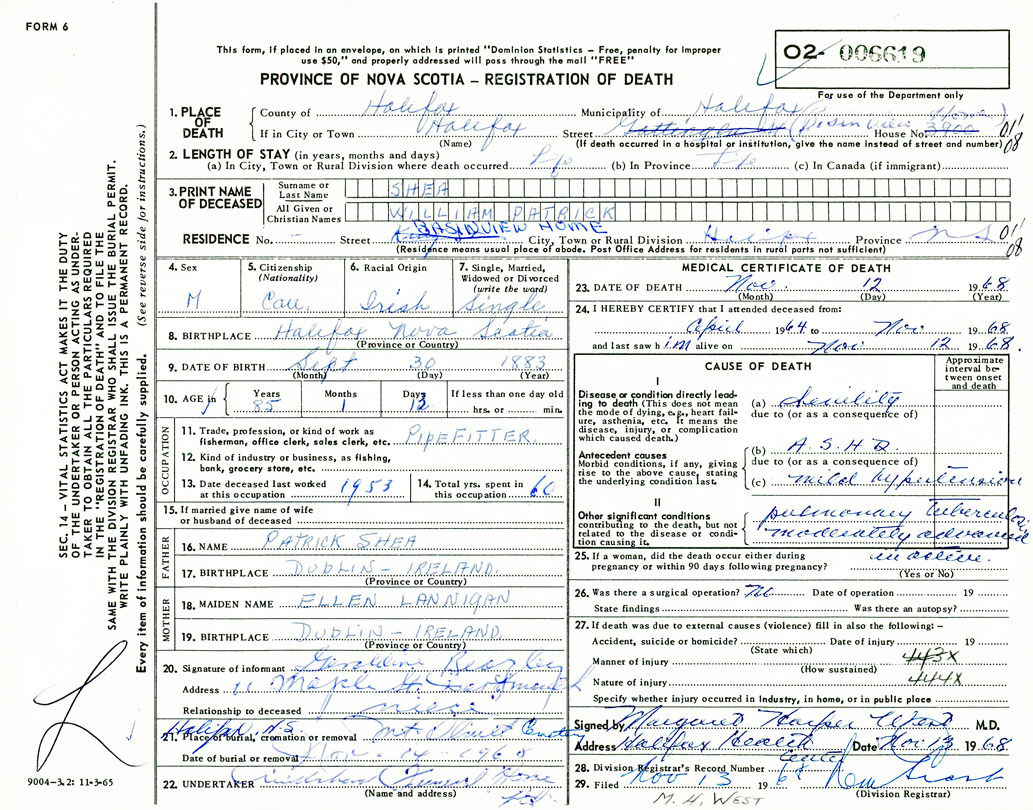 FORM 6
This form, if placed in an envelope, on which is printed "Dominion Statistics – Free, penalty for improper
use $50," and properly addressed will pass through the mail "FREE"
PROVINCE OF NOVA SCOTIA – REGISTRATION OF DEATH
O2- 006619
For use of the Department only
1. PLACE OF DEATH
County of Halifax Municipality of Halifax
If in City or Town Halifax Street (Basin View Home) House No. 3900
(Name) (If death occurred in a hospital or institution, give the name instead of street and number)
01/08
2. LENGTH OF STAY (in years, months and days)
(a) In City, Town or Rural Division where death occurred Life (b) In Province Life (c) In Canada (if immigrant)
3. PRINT NAME OF DECEASED
Surname or Last Name SHEA
All Given or Christian Names WILLIAM PATRICK
BASINVIEW HOME
RESIDENCE No. – Street City, Town or Rural Division Halifax Province NS
01/08
(Residence means usual place of abode. Post Office Address for residents in rural parts not sufficient)
4. Sex M
5. Citizenship (Nationality) Can
6. Racial Origin Irish
7. Single, Married, Widowed or Divorced (write the word) Single
8. BIRTHPLACE Halifax Nova Scotia
(Province or Country)
9. DATE OF BIRTH Sept 30 1883
(Month) (Day) (Year)
10. AGE in Years 85 Months 1 Days 12 If less than one day old hrs. or min.
OCCUPATION
11. Trade, profession, or kind of work as fisherman, office clerk, sales clerk, etc. PIPEFITTER.
12. Kind of industry or business, as fishing, bank, grocery store, etc.
13. Date deceased last worked at this occupation 1953
14. Total yrs. spent in this occupation 60
15. If married give name of wife or husband of deceased
FATHER
16. NAME PATRICK SHEA
17. BIRTHPLACE DUBLIN – IRELAND.
(Province or Country)
MOTHER
18. MAIDEN NAME ELLEN LANNIGAN
19. BIRTHPLACE DUBLIN – IRELAND
(Province or Country)
20. Signature of informant Geraldine Beasley
Address 11 Maple St. Dartmouth
Relationship to deceased niece
Halifax, N.S.
21. Place of burial, cremation or removal Mt Olivet
Date of burial or removal Nov. 14 – 1968
22. UNDERTAKER Funeral Home
(Name and address)
MEDICAL CERTIFICATE OF DEATH
23. DATE OF DEATH Nov. 12 1968
(Month) (Day) (Year)
24. I HEREBY CERTIFY that I attended deceased from:
April 1964 to Nov 1968
and last saw him alive on Nov 12 1968.
CAUSE OF DEATH
Approximate interval between onset and death
I
Disease or condition directly leading to death (This does not mean the mode of dying, e.g., heart failure, asthenia, etc. It means the disease, injury, or complication which caused death.)
(a) Senility
due to (or as a consequence of)
Antecedent causes
Morbid conditions, if any, giving rise to the above cause, stating the underlying condition last.
(b) A.S.H.D.
due to (or as a consequence of)
(c) mild hypertension
II
Other significant conditions contributing to the death, but not related to the disease or condition causing it.
pulmonary Tuberculosis
moderately advanced
inactive.
25. If a woman, did the death occur either during pregnancy or within 90 days following pregnancy?
(Yes or No)
26. Was there a surgical operation? No Date of operation 19
State findings Was there an autopsy?
27. If death was due to external causes (violence) fill in also the following: –
Accident, suicide or homicide? Date of injury 19
(State which)
Manner of injury 443X
(How sustained)
Nature of injury 444X
Specify whether injury occurred in Industry, in home, or in public place
Signed by Margaret Harper West M.D.
Address Halifax Health Centre Date Nov 13 1968
28. Division Registrar's Record Number
29. Filed Nov 13 1968
(Division Registrar)
M. H. WEST
SEC. 14 – VITAL STATISTICS ACT MAKES IT THE DUTY
OF THE UNDERTAKER OR PERSON ACTING AS UNDER-
TAKER TO OBTAIN ALL THE PARTICULARS REQUIRED
IN THE "REGISTRATION OF DEATH" AND TO FILE THE
SAME WITH THE DIVISION REGISTRAR WHO SHALL ISSUE THE BURIAL PERMIT.
WRITE PLAINLY WITH UNFADING INK. THIS IS A PERMANENT RECORD.
Every item of information should be carefully supplied. (See reverse side for instructions.)
9004-3.2: 11-3-65